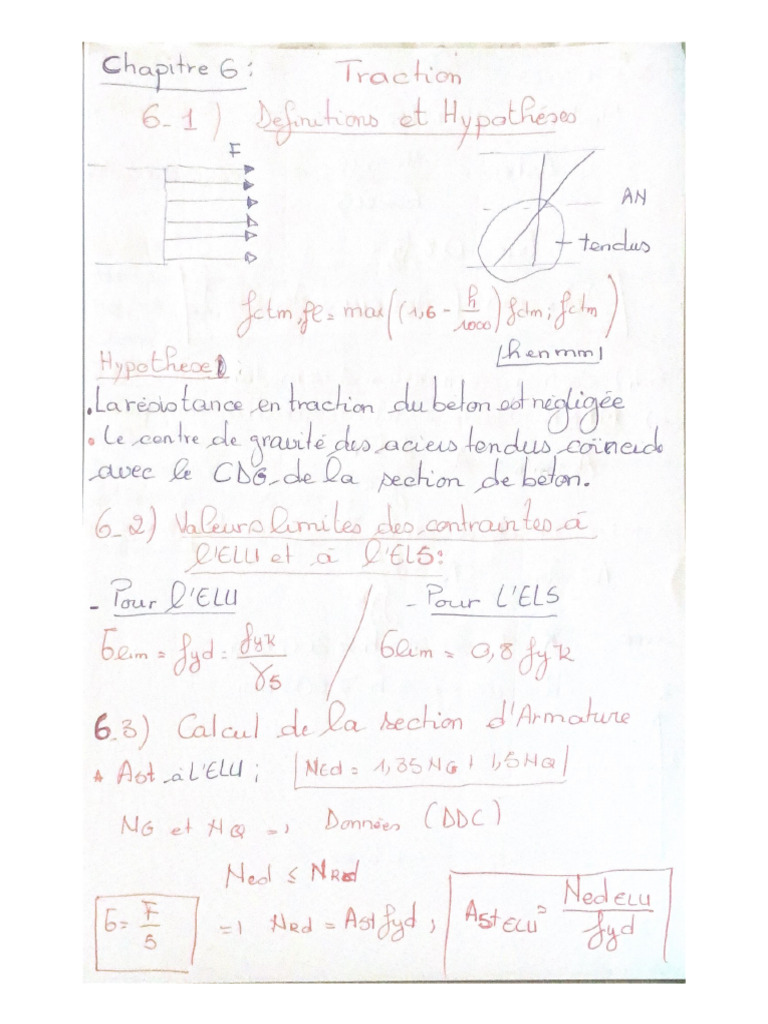 Chapitre 6 : Traction
6_1) Définitions et Hypothéses
F
AN
tendus
fctm,fl = max((1,6 - h/1000) fctm ; fctm)
|h en mm|
Hypothese :
. La résistance en traction du béton est négligée
. Le centre de gravité des aciers tendus coïncide
avec le CDG de la section de béton.
6_2) Valeurs limites des contraintes à
l'ELU et à l'ELS :
- Pour l'ELU - Pour L'ELS
σlim = fyd = fyk/γs / σlim = 0,8 fyk
6_3) Calcul de la section d'Armature
Ast à L'ELU ; |NEd = 1,35 NG + 1,5 NQ|
NG et NQ => Données (DDC)
Ned ≤ NRd
σ = F/S => NRd = Ast fyd ; AstELU = NedELU/fyd